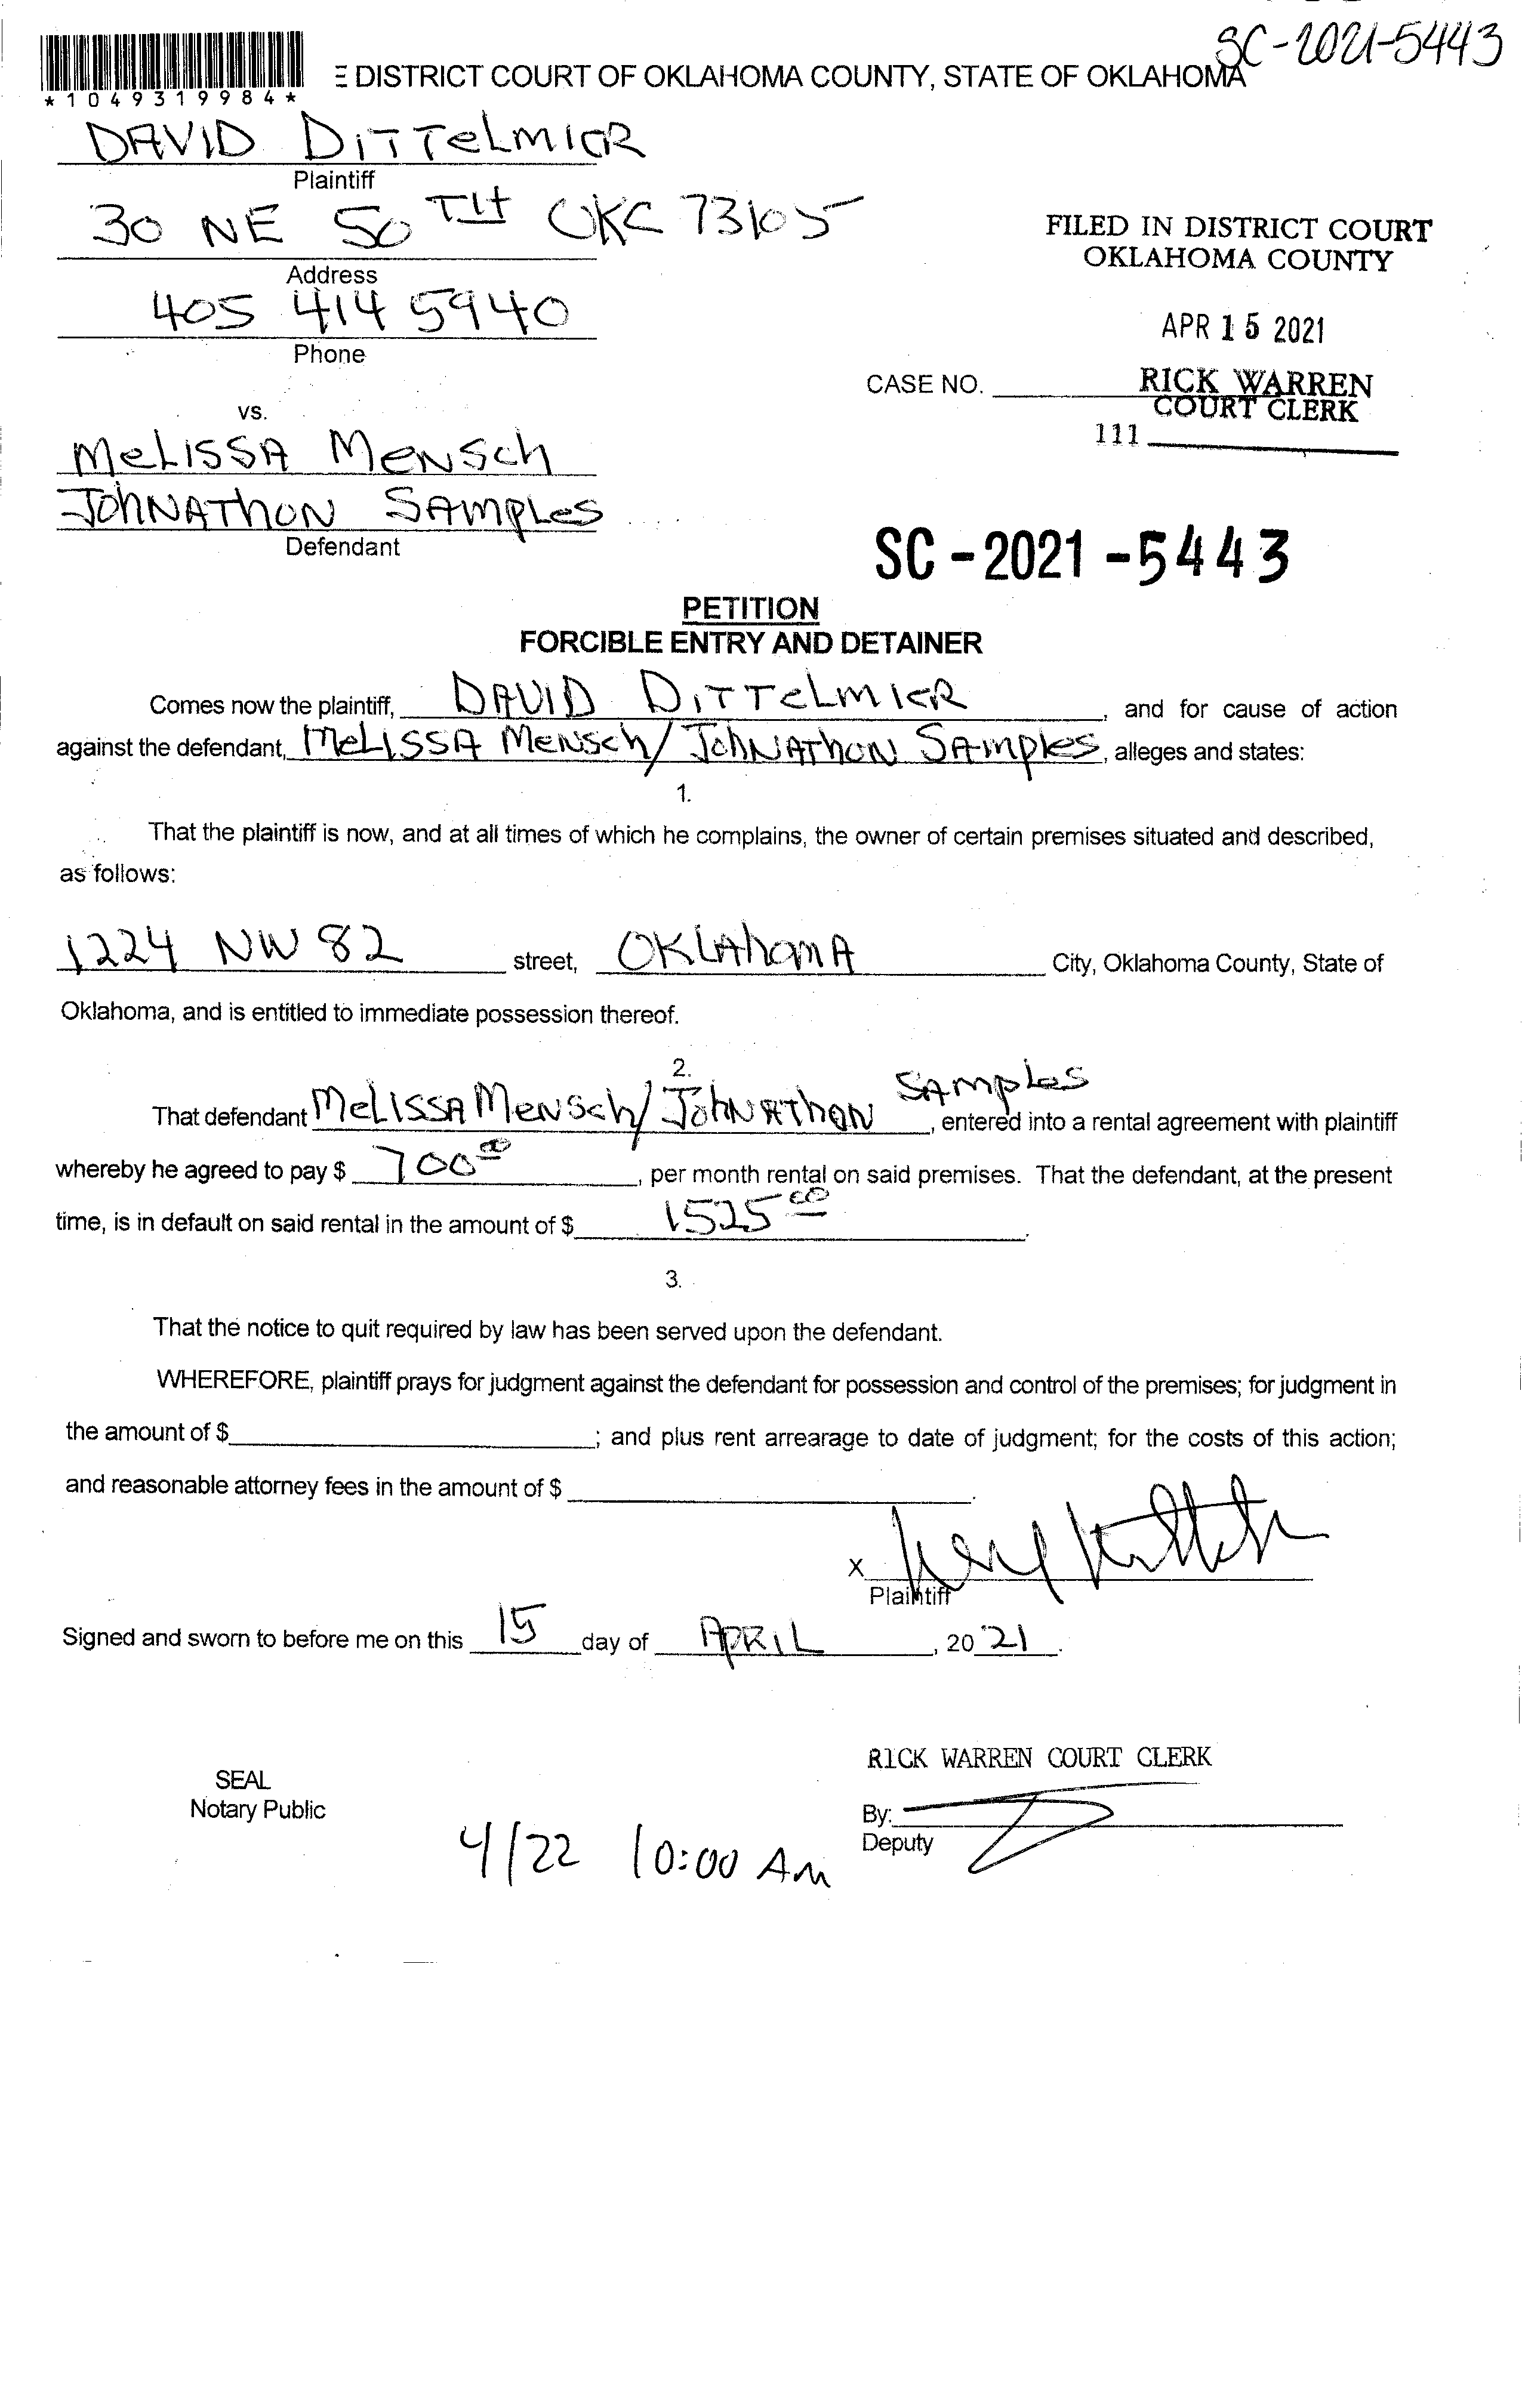 SC-2021-5443
*1049319984*
E DISTRICT COURT OF OKLAHOMA COUNTY, STATE OF OKLAHOMA
DAVID DITTELMIER
Plaintiff
30 NE 50 TH OKC 73105
Address
405 414 5940
Phone
FILED IN DISTRICT COURT
OKLAHOMA COUNTY
APR 15 2021
CASE NO. RICK WARREN
COURT CLERK
111
vs.
MELISSA MENSCH
JOHNATHON SAMPLES
Defendant
SC-2021-5443
PETITION
FORCIBLE ENTRY AND DETAINER
Comes now the plaintiff, DAVID DITTELMIER, and for cause of action
against the defendant, MELISSA MENSCH/JOHNATHON SAMPLES, alleges and states:
1.
That the plaintiff is now, and at all times of which he complains, the owner of certain premises situated and described,
as follows:
1224 NW 82 street, OKLAHOMA City, Oklahoma County, State of
Oklahoma, and is entitled to immediate possession thereof.
2.
That defendant MELISSA MENSCH/JOHNATHON SAMPLES, entered into a rental agreement with plaintiff
whereby he agreed to pay $ 700 00, per month rental on said premises. That the defendant, at the present
time, is in default on said rental in the amount of $ 1525 00.
3.
That the notice to quit required by law has been served upon the defendant.
WHEREFORE, plaintiff prays for judgment against the defendant for possession and control of the premises; for judgment in
the amount of $; and plus rent arrearage to date of judgment; for the costs of this action;
and reasonable attorney fees in the amount of $.
X
Plaintiff
Signed and sworn to before me on this 15 day of APRIL, 20 21.
RICK WARREN COURT CLERK
SEAL
Notary Public
By:
Deputy
4/22 10:00 AM